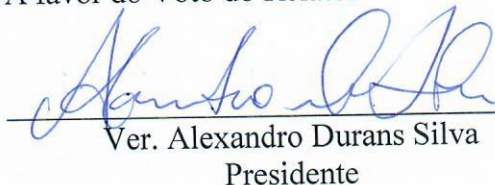 A favor do Voto do
Ver. Alexandro Durans Silva
Presidente